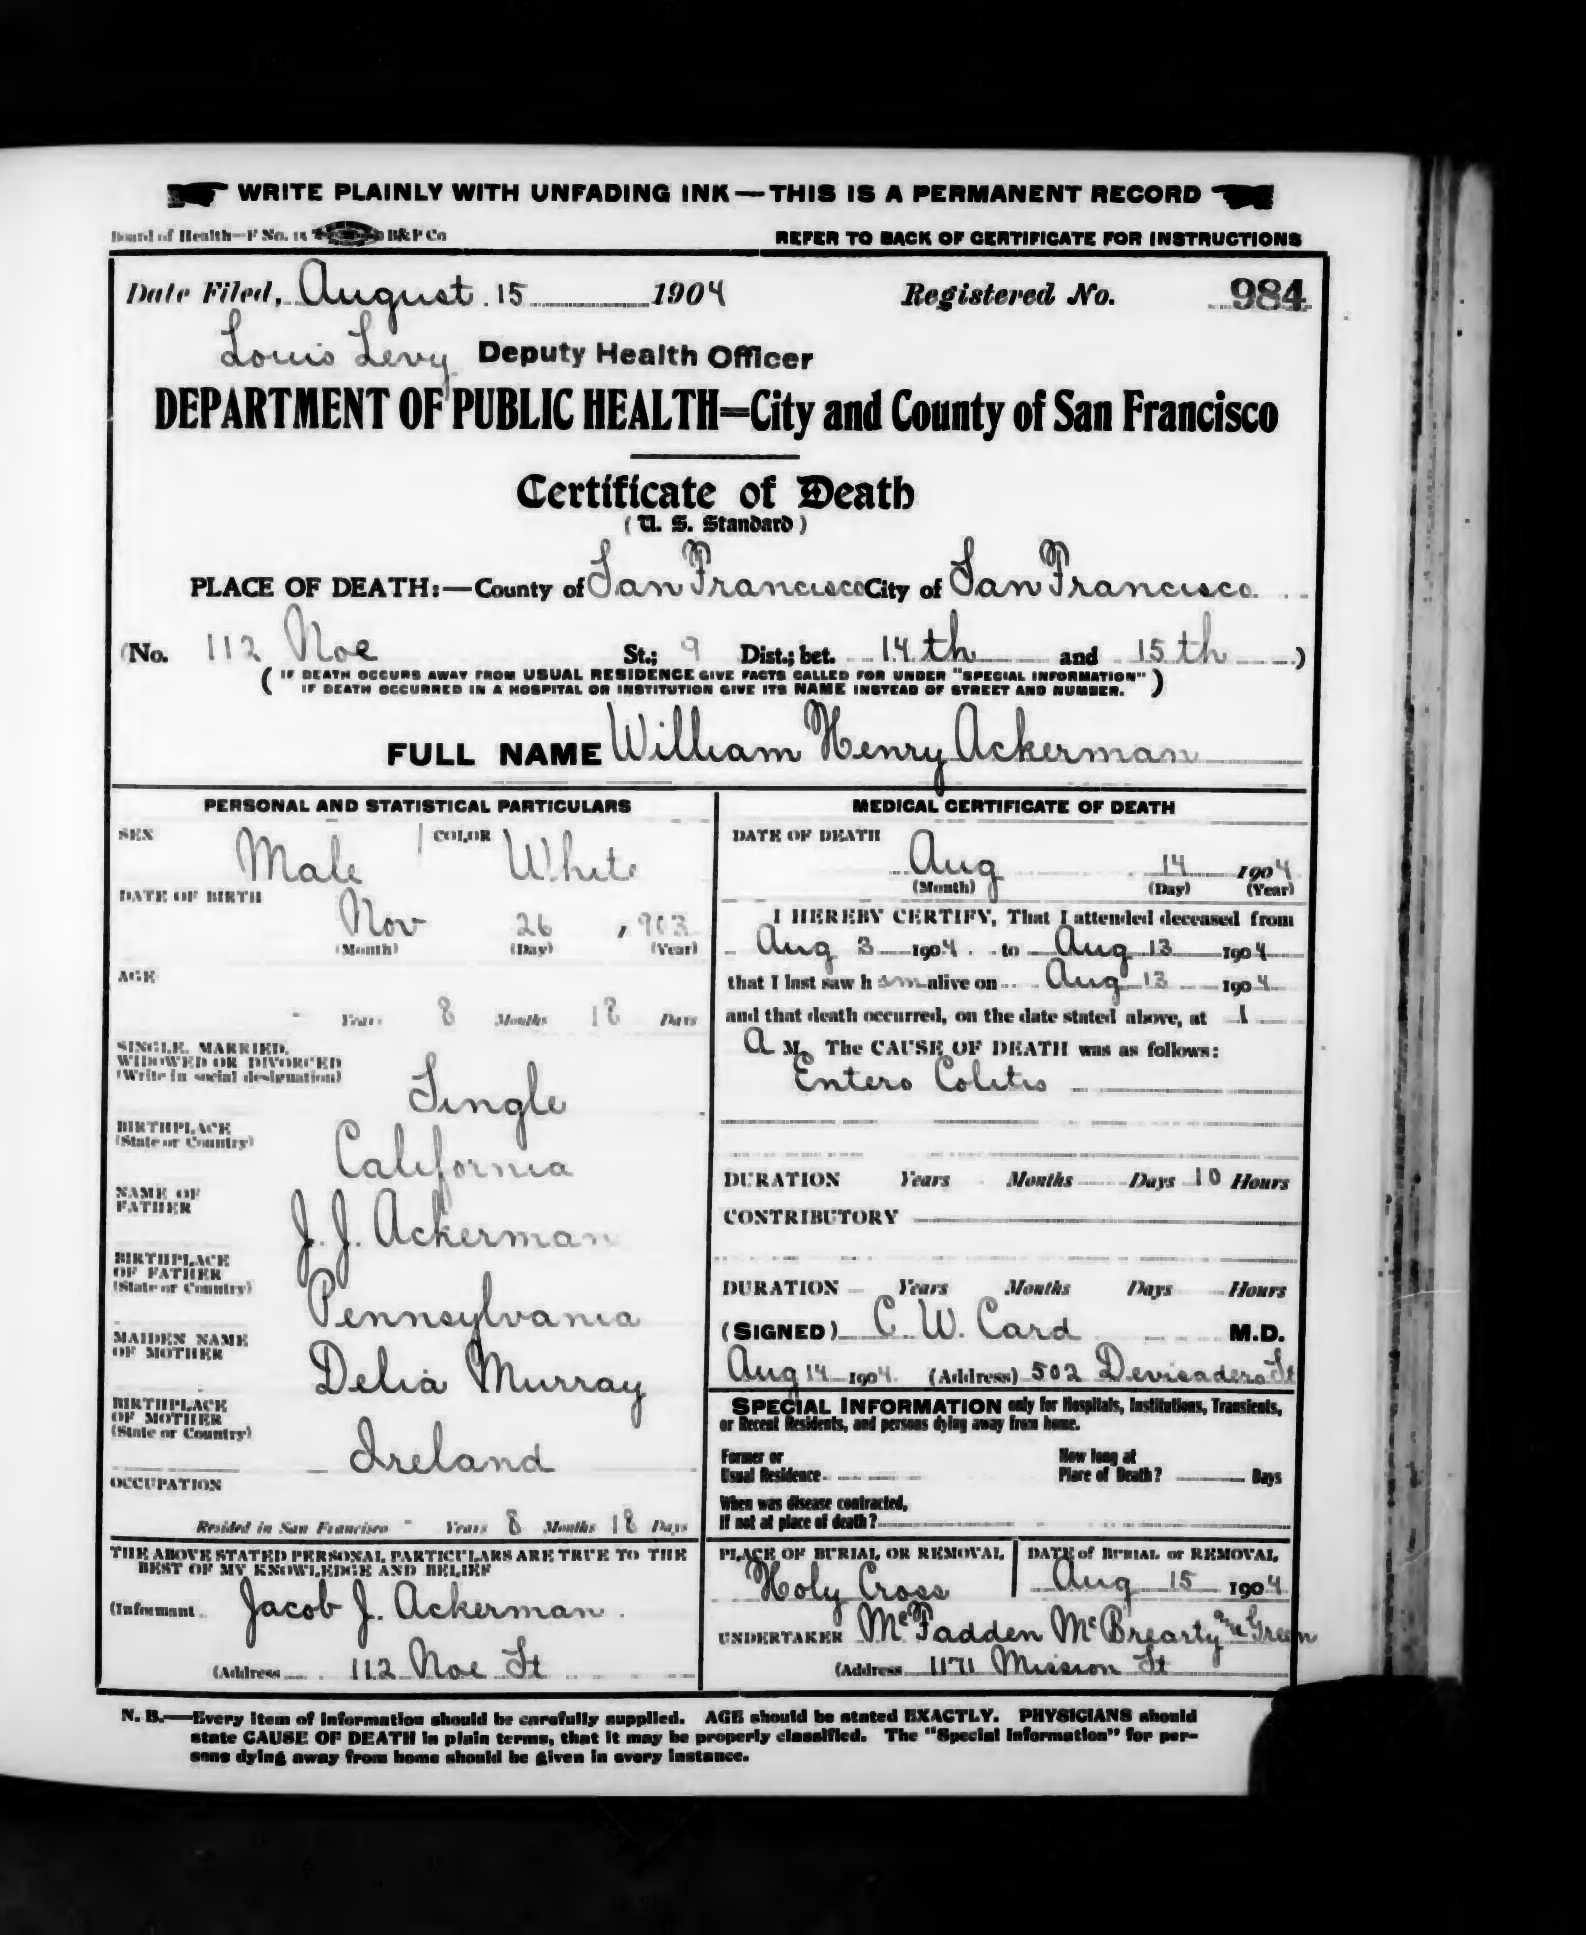 WRITE PLAINLY WITH UNFADING INK—THIS IS A PERMANENT RECORD
Board of Health—F No. 14 B&P Co
REFER TO BACK OF CERTIFICATE FOR INSTRUCTIONS
Date Filed, August 15 1904 Registered No. 984
Louis Levy Deputy Health Officer
DEPARTMENT OF PUBLIC HEALTH=City and County of San Francisco
Certificate of Death
(U. S. Standard)
PLACE OF DEATH:—County of San Francisco City of San Francisco
(No. 112 Noe St.; 9 Dist.; bet. 14th and 15th)
(IF DEATH OCCURS AWAY FROM USUAL RESIDENCE GIVE FACTS CALLED FOR UNDER "SPECIAL INFORMATION"
IF DEATH OCCURRED IN A HOSPITAL OR INSTITUTION GIVE ITS NAME INSTEAD OF STREET AND NUMBER.)
FULL NAME William Henry Ackerman
PERSONAL AND STATISTICAL PARTICULARS
SEX Male COLOR White
DATE OF BIRTH
Nov 26, 903
(Month) (Day) (Year)
AGE
- Years 8 Months 18 Days
SINGLE, MARRIED,
WIDOWED OR DIVORCED
(Write in social designation)
Single
BIRTHPLACE
(State or Country)
California
NAME OF
FATHER
J. J. Ackerman
BIRTHPLACE
OF FATHER
(State or Country)
Pennsylvania
MAIDEN NAME
OF MOTHER
Delia Murray
BIRTHPLACE
OF MOTHER
(State or Country)
Ireland
OCCUPATION
Resided in San Francisco - Years 8 Months 18 Days
THE ABOVE STATED PERSONAL PARTICULARS ARE TRUE TO THE
BEST OF MY KNOWLEDGE AND BELIEF
(Informant Jacob J. Ackerman
(Address 112 Noe St
MEDICAL CERTIFICATE OF DEATH
DATE OF DEATH
Aug 14 1904
(Month) (Day) (Year)
I HEREBY CERTIFY, That I attended deceased from
Aug 3 1904 to Aug 13 1904
that I last saw h im alive on Aug 13 1904
and that death occurred, on the date stated above, at 1
A M. The CAUSE OF DEATH was as follows:
Entero Colitis
DURATION Years Months Days 10 Hours
CONTRIBUTORY
DURATION Years Months Days Hours
(SIGNED) C. W. Card M.D.
Aug 14 1904. (Address) 502 Devisadero St
SPECIAL INFORMATION only for Hospitals, Institutions, Transients,
or Recent Residents, and persons dying away from home.
Former or
Usual Residence
How long at
Place of Death? Days
When was disease contracted,
If not at place of death?
PLACE OF BURIAL OR REMOVAL
Holy Cross
DATE of BURIAL or REMOVAL
Aug 15 1904
UNDERTAKER McFadden McBrearty and Green
(Address 1171 Mission St
N. B.—Every item of information should be carefully supplied. AGE should be stated EXACTLY. PHYSICIANS should
state CAUSE OF DEATH in plain terms, that it may be properly classified. The "Special Information" for per-
sons dying away from home should be given in every instance.